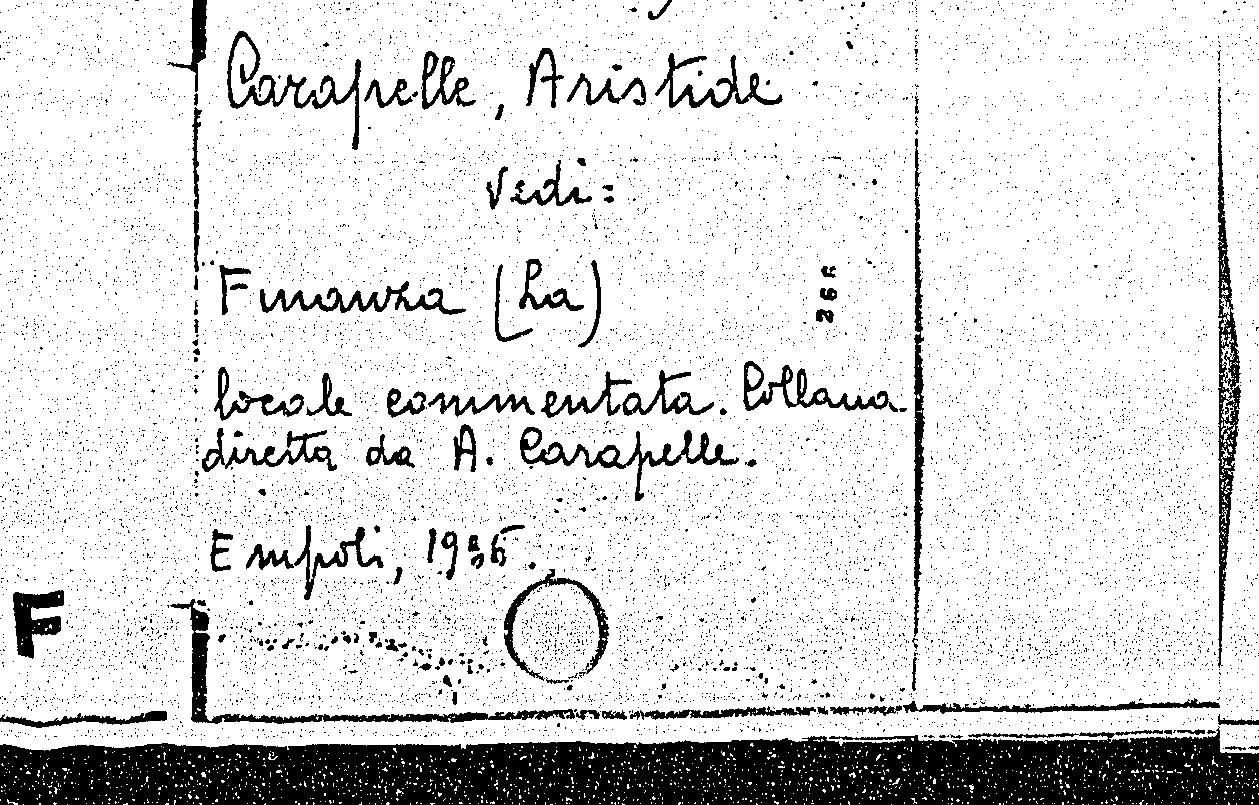 Carapelle, Aristide
Vedi:
Finanza (La)
locale commentata. Collana
diretta da A. Carapelle.
Empoli, 1936.
F